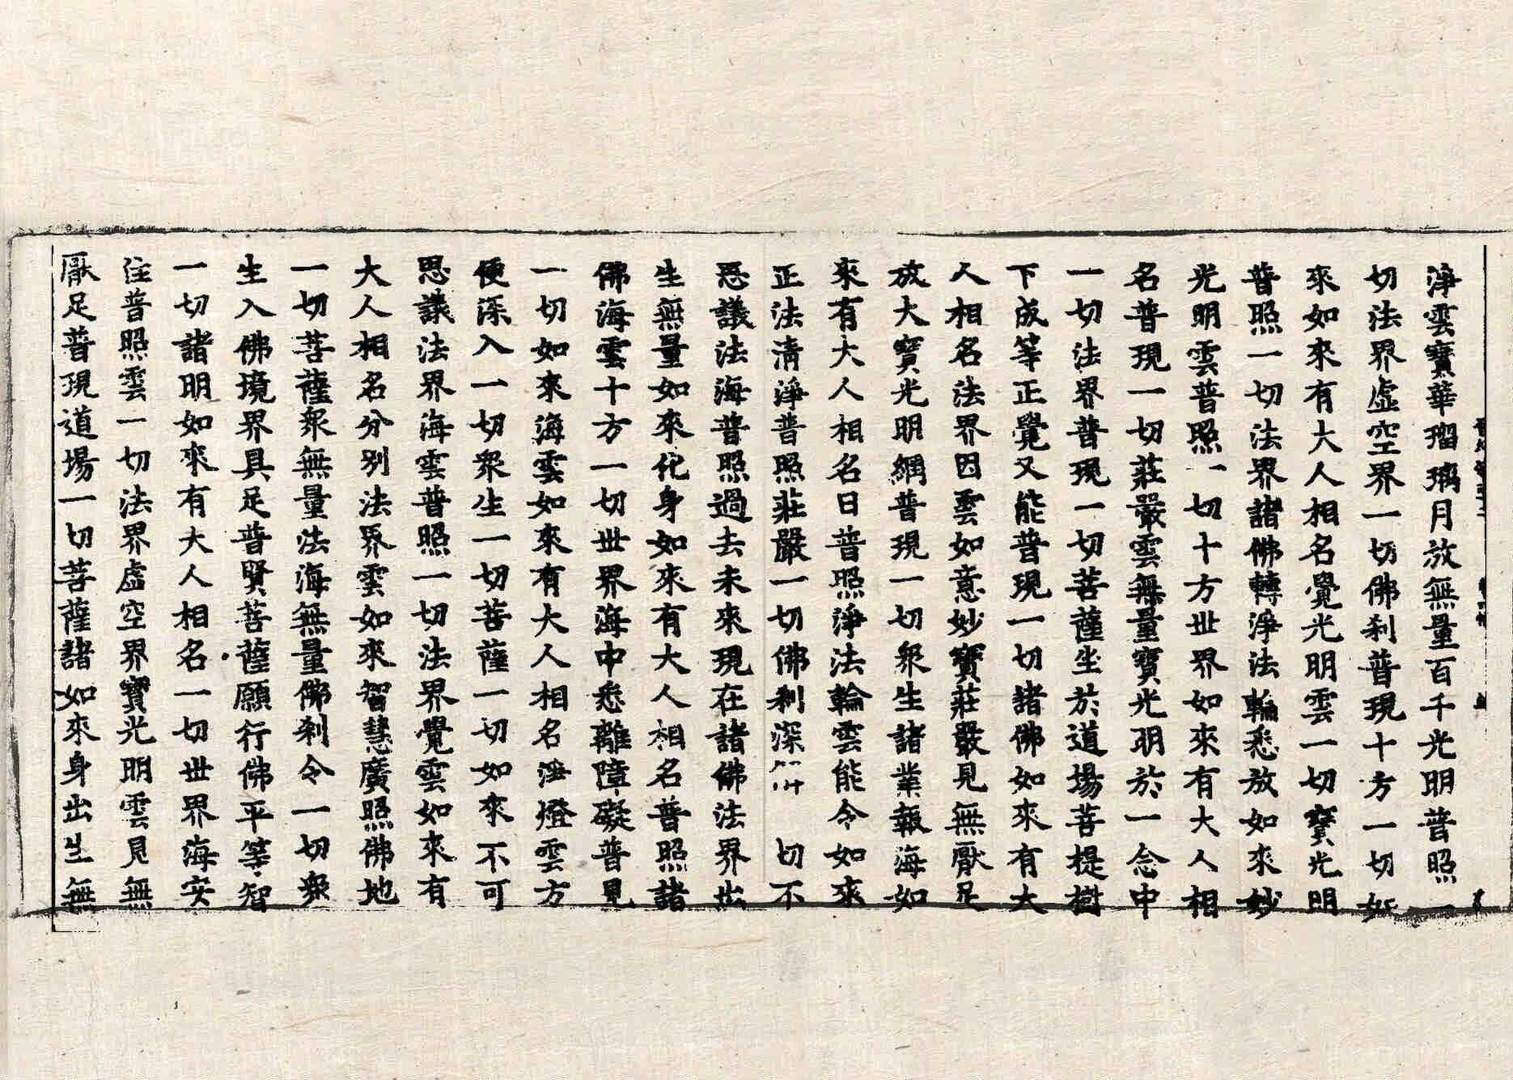 淨雲寶華瑠璃月放無量百千光明普照一
切法界虛空界一切佛刹普現十方一切如
來如來有大人相名覺光明雲一切寶光明
普照一切法界諸佛轉淨法輪悉放如來妙
光明雲普照一切十方世界如來有大人相
名普現一切莊嚴雲無量寶光明於一念中
一切法界普現一切菩薩坐於道場菩提樹
下成等正覺又能普現一切諸佛如來有大
人相名法界因雲如意妙寶莊嚴見無厭足
放大寶光明網普現一切眾生諸業報海如
來有大人相名日普照淨法輪雲能令如來
正法清淨普照莊嚴一切佛刹深 切不
思議法海普照過去未來現在諸佛法界出
生無量如來化身如來有大人相名普照諸
佛海雲十方一切世界海中悉離障礙普見
一切如來海雲如來有大人相名淨燈雲方
便深入一切眾生一切菩薩一切如來不可
思議法界海雲普照一切法界覺雲如來有
大人相名分別法界雲如來智慧廣照佛地
一切菩薩眾無量法海無量佛刹令一切眾
生入佛境界具足普賢菩薩願行佛平等智
一切諸明如來有大人相名一切世界海安
住普照雲一切法界虛空界寶光明雲見無
厭足普現道場一切菩薩諸如來身出生無